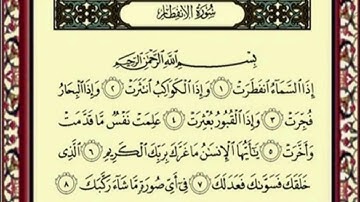 سُورَةُ الانفِطَار
بِسْمِ اللَّهِ الرَّحْمَٰنِ الرَّحِيمِ
إِذَا السَّمَاءُ انفَطَرَتْ ١ وَإِذَا الْكَوَاكِبُ انتَثَرَتْ ٢ وَإِذَا الْبِحَارُ
فُجِّرَتْ ٣ وَإِذَا الْقُبُورُ بُعْثِرَتْ ٤ عَلِمَتْ نَفْسٌ مَّا قَدَّمَتْ
وَأَخَّرَتْ ٥ يَٰأَيُّهَا الْإِنسَٰنُ مَا غَرَّكَ بِرَبِّكَ الْكَرِيمِ ٦ الَّذِي
خَلَقَكَ فَسَوَّىٰكَ فَعَدَلَكَ ٧ فِي أَيِّ صُورَةٍ مَّا شَاءَ رَكَّبَكَ ٨